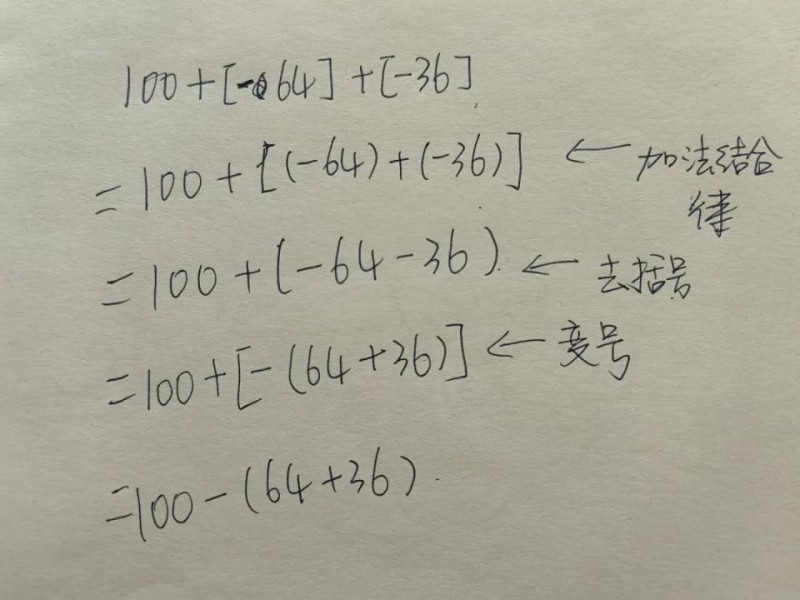 100+[-64]+[-36]
=100+[(-64)+(-36)] ← 加法结合
律
=100+(-64-36) ← 去括号
=100+[-(64+36)] ← 变号
=100-(64+36)